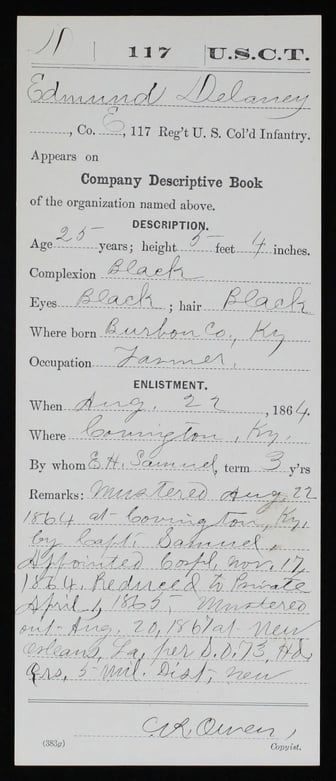 D | 117 | U.S.C.T.
Edmund Delaney
, Co. E, 117 Reg't U. S. Col'd Infantry.
Appears on
Company Descriptive Book
of the organization named above.
DESCRIPTION.
Age 25 years; height 5 feet 4 inches.
Complexion Black
Eyes Black ; hair Black
Where born Burbon Co., Ky
Occupation Farmer.
ENLISTMENT.
When Aug. 22 , 1864.
Where Covington, Ky.
By whom E.H. Samuel, term 3 y'rs
Remarks: Mustered Aug. 22
1864 at Covington, Ky.
by Capt. Samuel.
Appointed Corpl. Nov. 17
1864. Reduced to Private
April 1, 1865. Mustered
out Aug. 20, 1867 at New
Orleans, La, per S.O. 73, Hd.
Qrs. 5 Mil. Dist, New
CR Owen,
(383g) Copyist.